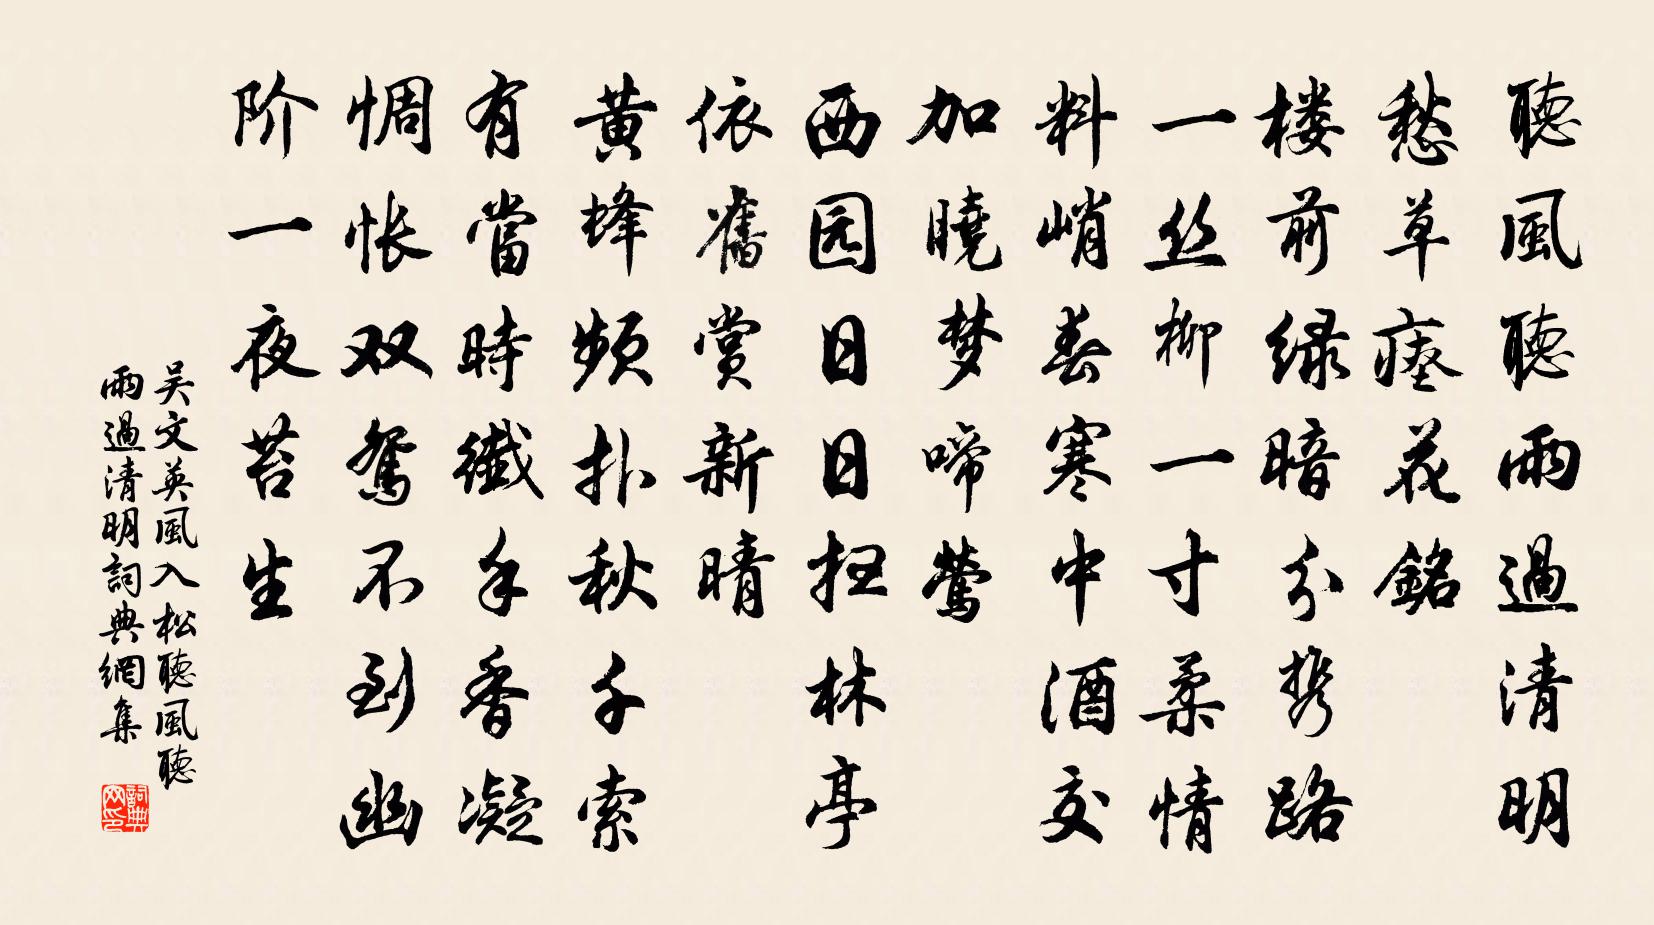 聽風聽雨過清明
愁草瘞花銘
楼前绿暗分携路
一丝柳一寸柔情
料峭春寒中酒交
加曉梦啼莺
西园日日扫林亭
依舊赏新晴
黄蜂频扑秋千索
有當時纖手香凝
惆怅双鸳不到幽
阶一夜苔生
吴文英風入松聽風聽
雨過清明詞典網集
詞典网印